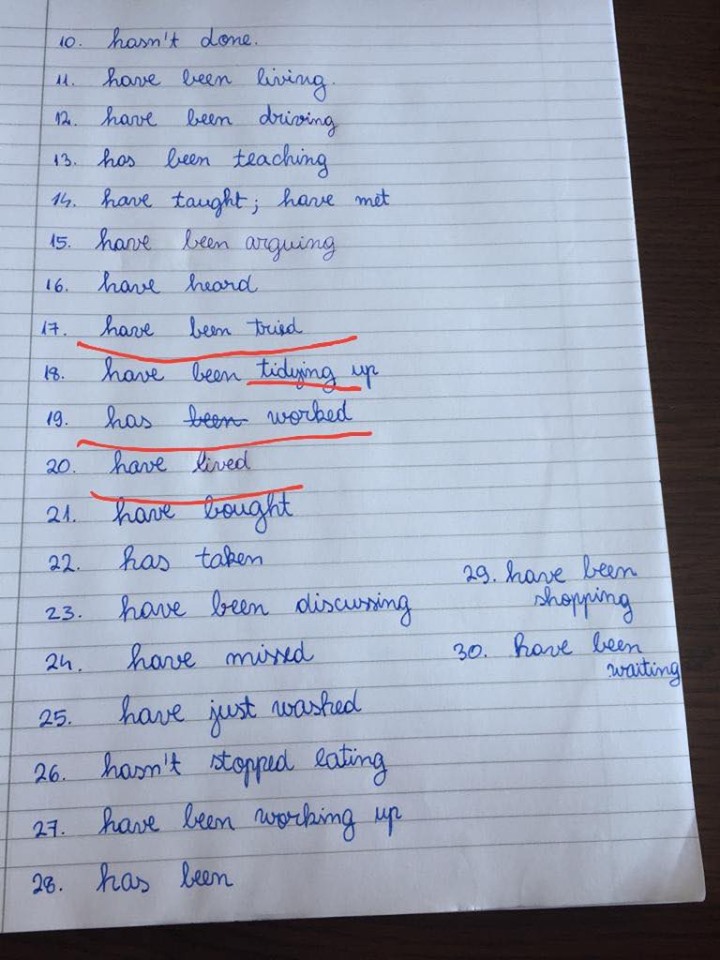 10. hasn't done.
11. have been living.
12. have been driving
13. has been teaching
14. have taught; have met
15. have been arguing
16. have heard
17. have been tried
18. have been tidying up
19. has been worked
20. have lived
21. have bought
22. has taken
23. have been discussing
24. have missed
25. have just washed
26. hasn't stopped eating
27. have been working up
28. has been
29. have been
shopping
30. have been
waiting